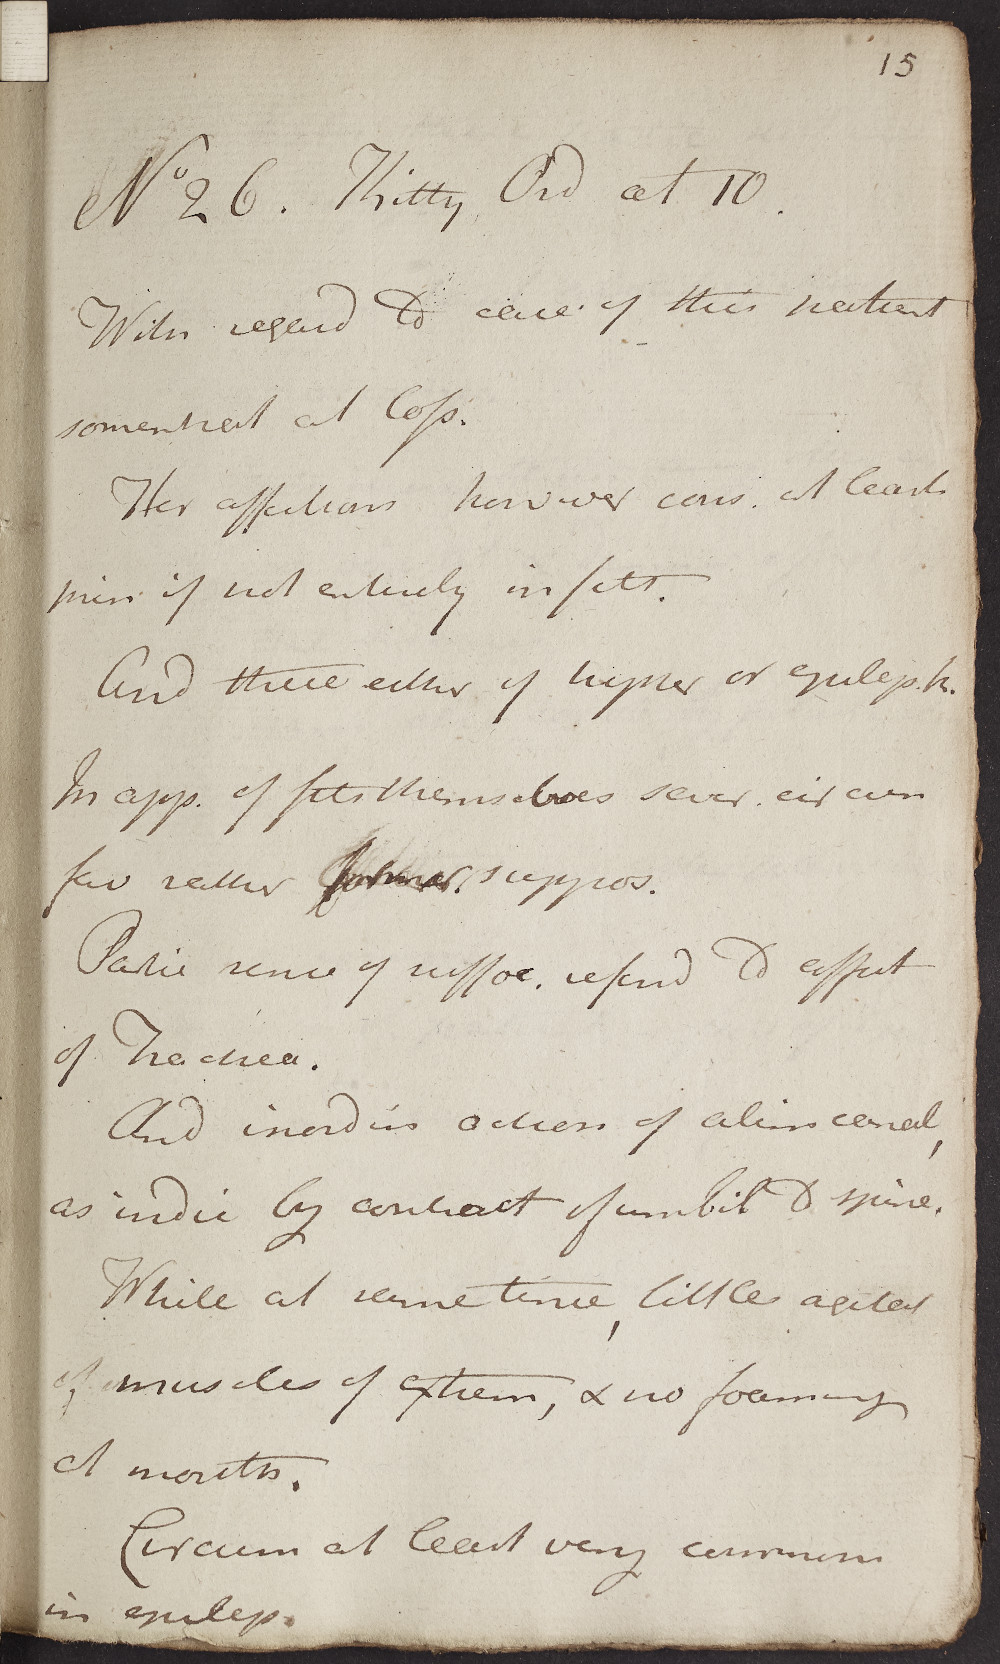 15
No 26. Kitty Ord aet 10.
With regard to case of this patient
somewhat at loss.
Her affections however cons. at least
prin. if not entirely in fitts.
And these either of hyster or epilep. k.
In app. of fits themselves sever. circum
fav rather former. suppos.
Partic sense of suffoc. refend to affect
of Trachea.
And inordin action of alim canal,
as indic by contract of umbil to spine.
While at same time, little agitat
of muscles of extrem, & no foaming
at mouth.
Circum at least very common
in epilep.